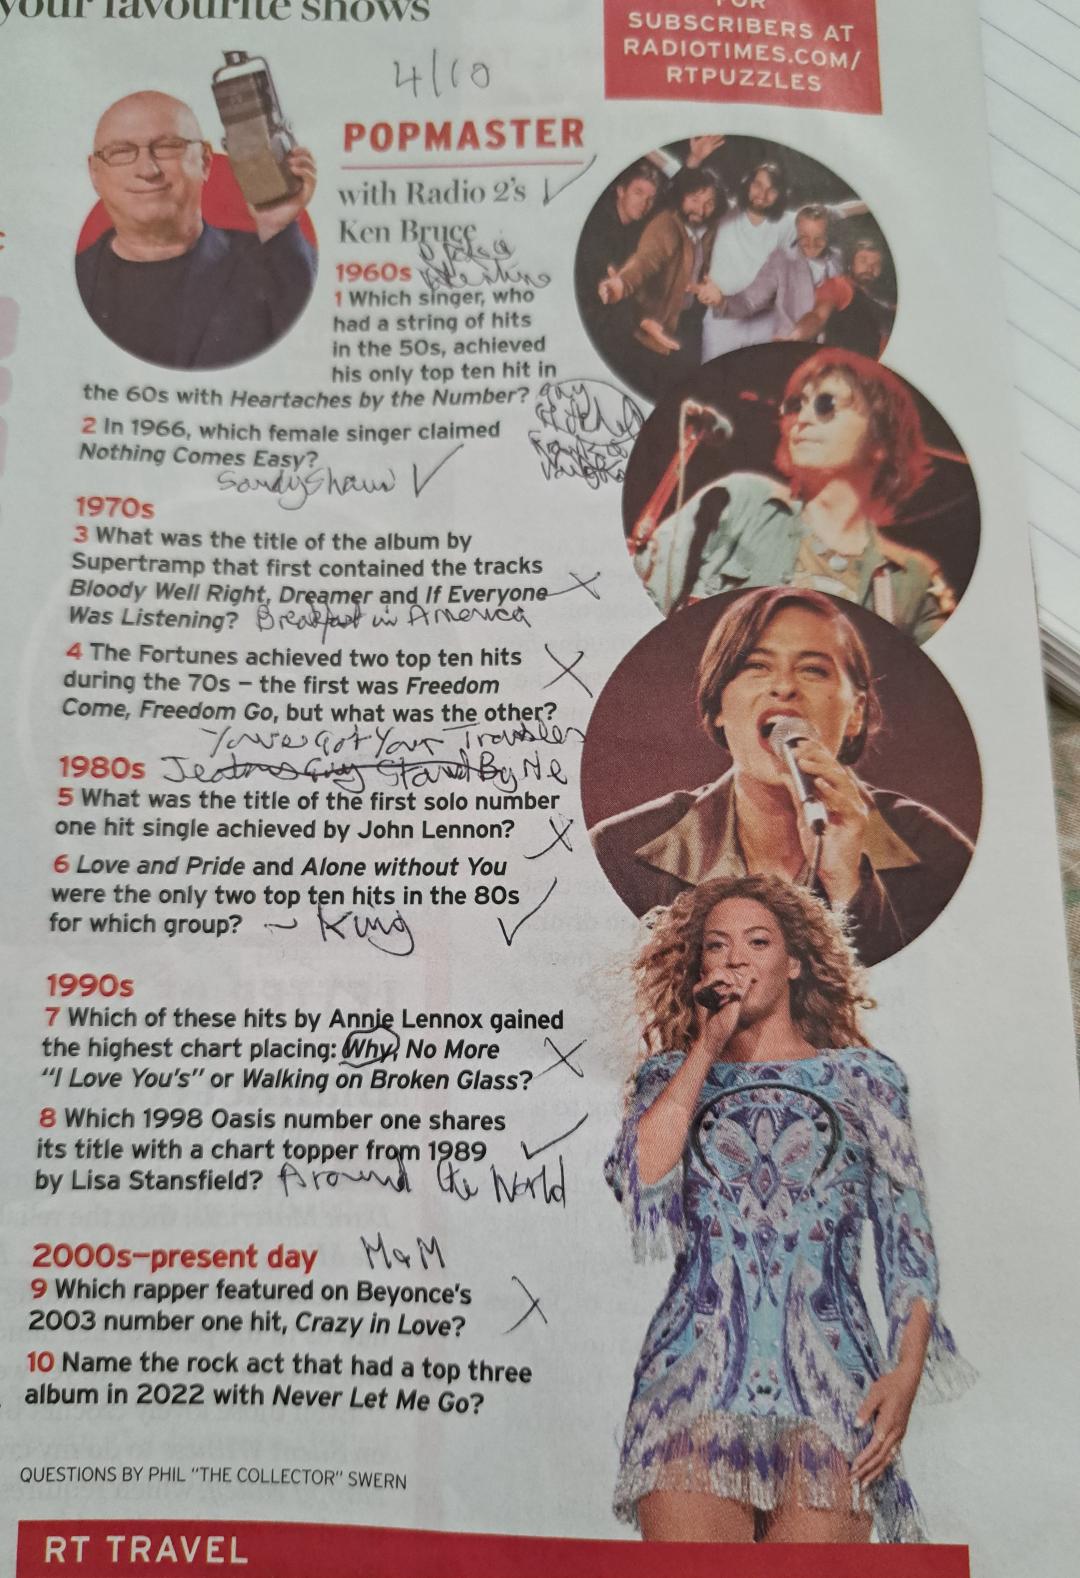 your favourite shows
FOR
SUBSCRIBERS AT
RADIOTIMES.COM/
RTPUZZLES
4/10
POPMASTER
with Radio 2's
Ken Bruce
1960s
1 Which singer, who
had a string of hits
in the 50s, achieved
his only top ten hit in
the 60s with Heartaches by the Number?
2 In 1966, which female singer claimed
Nothing Comes Easy?
Sandy Shaw
1970s
3 What was the title of the album by
Supertramp that first contained the tracks
Bloody Well Right, Dreamer and If Everyone
Was Listening? Breakfast in America
4 The Fortunes achieved two top ten hits
during the 70s – the first was Freedom
Come, Freedom Go, but what was the other?
You've Got Your Troubles
1980s Jealous Guy Stand By Me
5 What was the title of the first solo number
one hit single achieved by John Lennon?
6 Love and Pride and Alone without You
were the only two top ten hits in the 80s
for which group? ~ King
1990s
7 Which of these hits by Annie Lennox gained
the highest chart placing: Why, No More
"I Love You's" or Walking on Broken Glass?
8 Which 1998 Oasis number one shares
its title with a chart topper from 1989
by Lisa Stansfield? Around the World
2000s–present day M&M
9 Which rapper featured on Beyonce's
2003 number one hit, Crazy in Love?
10 Name the rock act that had a top three
album in 2022 with Never Let Me Go?
QUESTIONS BY PHIL "THE COLLECTOR" SWERN
RT TRAVEL